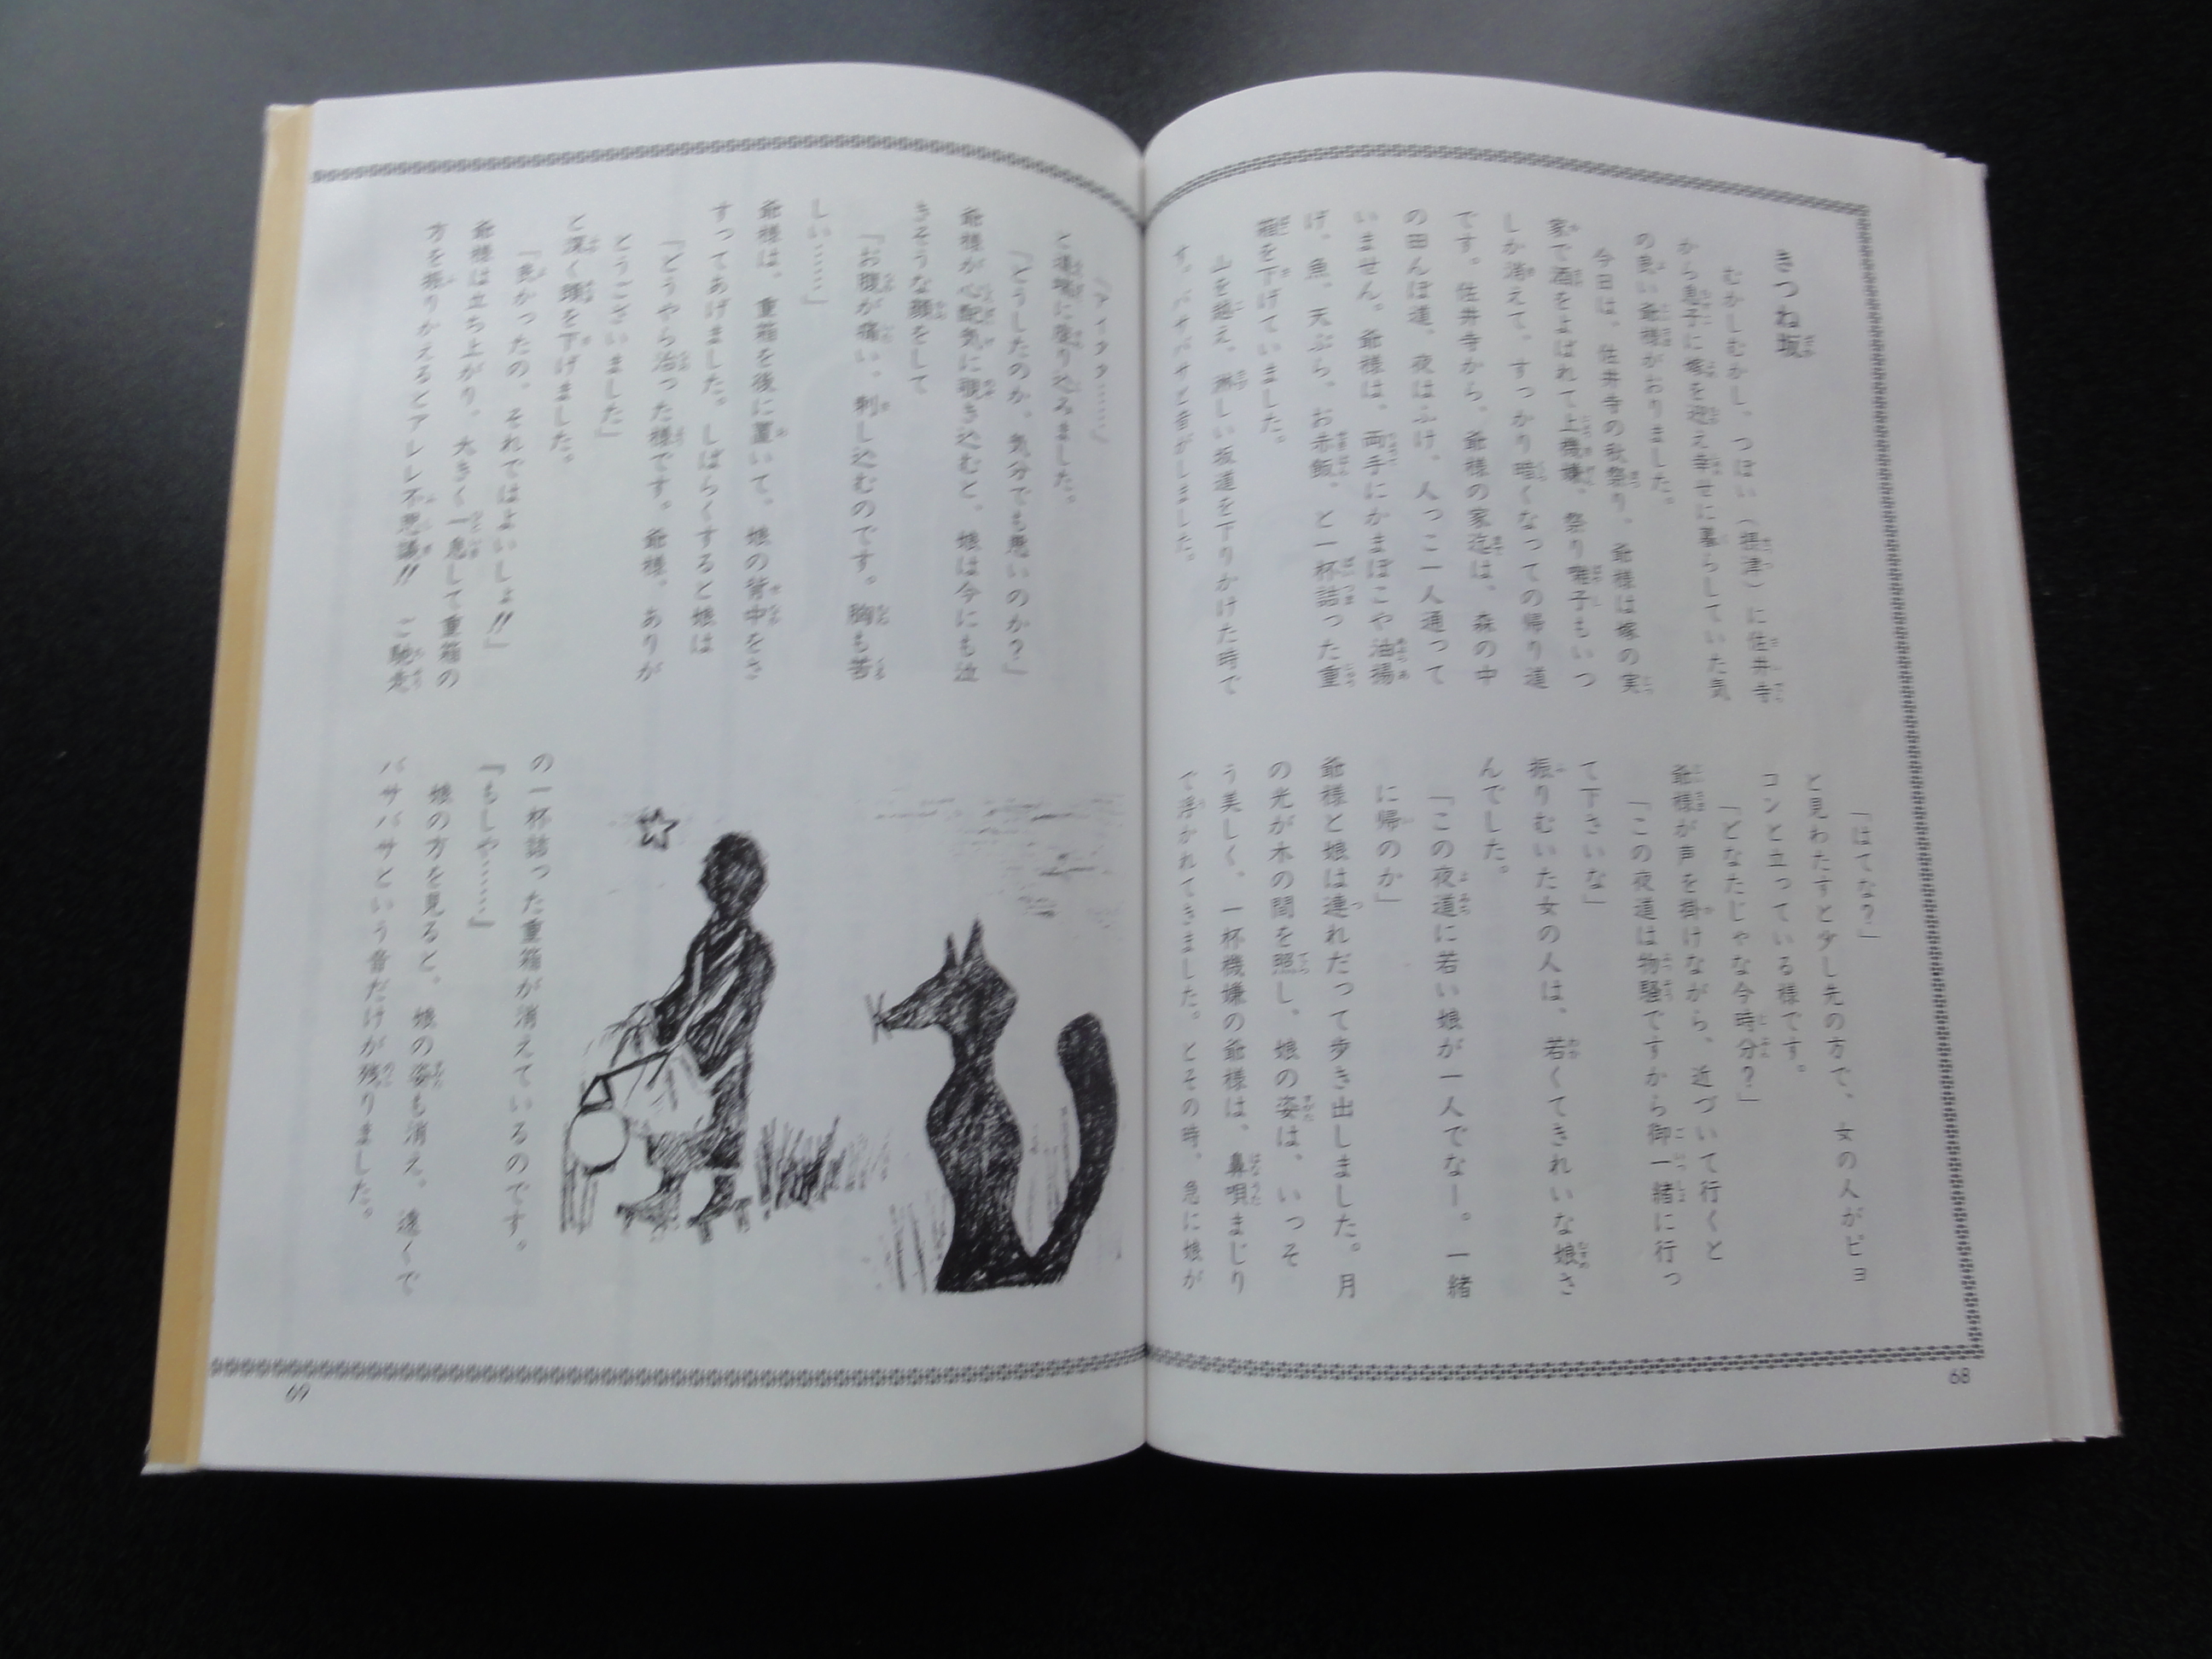 きつね坂
むかしむかし、つばい（椿井）に佐井寺
から息子に嫁を迎え幸せに暮らしていた気
の良い爺様がおりました。
今日は、佐井寺の秋祭り。爺様は嫁の実
家で酒をよばれて上機嫌。祭り囃子もいつ
しか消えて、すっかり暗くなっての帰り道
です。佐井寺から、爺様の家迄は、森の中
の田んぼ道。夜はふけ、人っこ一人通って
いません。爺様は、両手にかまぼこや油揚
げ、魚、天ぷら、お赤飯、と一杯詰った重
箱を下げていました。
上を越え、淋しい坂道を下りかけた時で
す。バサバサと音がしました。
「はてな？」
と見わたすと少し先の方で、女の人がピョ
コンと立っている様です。
「どなたじゃな今時分？」
爺様が声を掛けながら、近づいて行くと
「この夜道は物騒ですから御一緒に行っ
て下さいな」
振りむいた女の人は、若くてきれいな娘さ
んでした。
「この夜道に若い娘が一人でなー。一緒
に帰のか」
爺様と娘は連れだって歩き出しました。月
の光が木の間を照し、娘の姿は、いっそ
う美しく、一杯機嫌の爺様は、鼻唄まじり
で浮かれてきました。とその時、急に娘が
「アイタタ……」
と道端に座り込みました。
「どうしたのか、気分でも悪いのか？」
爺様が心配気に覗き込むと、娘は今にも泣
きそうな顔をして
「お腹が痛い、刺し込むのです。胸も苦
しい……」
爺様は、重箱を後に置いて、娘の背中をさ
すってあげました。しばらくすると娘は
「どうやら治った様です。爺様、ありが
とうございました」
と深く頭を下げました。
「良かったの、それではよいしょ!!」
爺様は立ち上がり、大きく一息して重箱の
方を振りかえるとアレレ不思議!! ご馳走
の一杯詰った重箱が消えているのです。
『もしや……』
娘の方を見ると、娘の姿も消え、遠くで
バサバサという音だけが残りました。
68
69